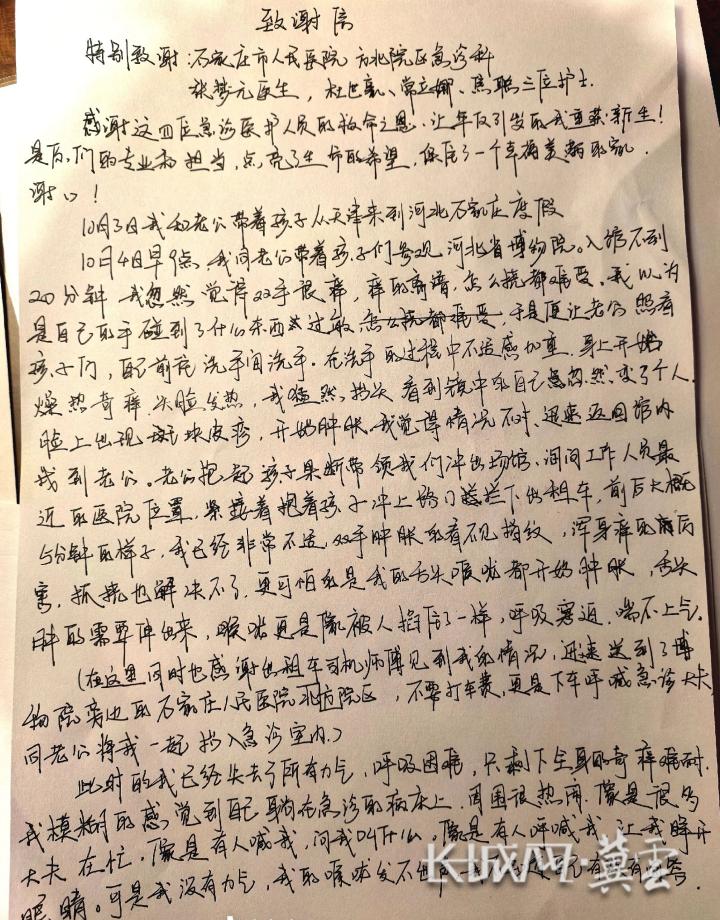 致谢信
特别致谢：石家庄市人民医院 方北院区急诊科
张梦元医生，杜 、常立娜、 三位护士.
感谢这四位急诊医护人员的救命之恩，让年仅 的我重获新生！
是 们的专业和担当，点亮了生命的希望，保住了一个幸福美满的家.
谢谢！
10月3日我和老公带着孩子从天津来到河北石家庄度假
10月4日早9点，我同老公带着孩子们参观河北省博物院。入馆不到
20分钟 我忽然觉得双手很痒，痒的离谱，怎么挠都难受。我以为
是自己的手碰到了什么东西 过敏 怎么挠都难受，于是便让老公照看
孩子们， 前往洗手间洗手。在洗手的过程中不适感加重，身上开始
燥热奇痒，头脸发热，我猛然抬头看到镜中的自己 忽然变了个人
脸上出现斑块皮疹，开始肿胀。我觉得情况不对、迅速返回馆内
找到老公。老公抱起孩子果断带领我们冲出场馆、询问工作人员最
近的医院位置，紧接着抱着孩子冲上路口 拦下出租车，前后大概
5分钟的样子，我已经非常不适，双手肿胀的看不见指纹，浑身痒的厉
害，抓挠也解决不了，更可怕的是我的舌头喉咙都开始肿胀，舌头
肿的需要伸出来，喉咙更是像被人掐住了一样，呼吸窘迫，喘不上气。
（在这里同时也感谢出租车司机师傅见到我的情况，迅速送到了博
物院旁边的石家庄人民医院 方院区，不要打车费，更是下车呼喊急诊大夫
同老公将我一起抬入急诊室内。）
此时的我已经失去了所有力气，呼吸困难，只剩下全身的奇痒难耐.
我模糊的感觉到自己躺在急诊的病床上，周围很热闹，像是很多
大夫在忙，像是有人喊我，问我叫什么，像是有人呼喊我 让我睁开
眼睛。可是我没有力气，我的喉咙发不出
KJWN·冀云